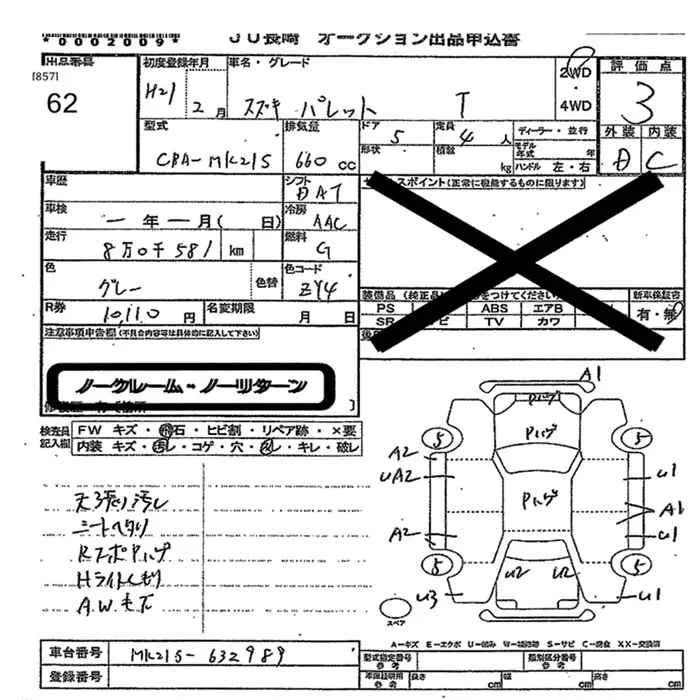 *0002009*
JU長崎 オークション出品申込書
出品番号
[857]
62
初度登録年月
H21 2月
車名・グレード
スズキ パレット T
2WD
4WD
評価点
3
外装 内装
D C
型式
CBA-MK21S
排気量
660 cc
ドア 5
定員 4人
ディーラー・並行
形状
積載 kg
モデル年式 年
ハンドル 左・右
車歴
シフト
DAT
車検
一年一月( 日)
冷房
AAC
走行
8万0千581 km
燃料
G
色
グレー
色替
色コード
ZY4
R券
10,110円
名変期限
月 日
セールスポイント(正常に機能するものに限ります)
新車保証書
有・無
PS ABS エアB
SR TV カワ
注意事項申告欄(不具合内容等は具体的に記入して下さい)
ノークレーム・ノーリターン
検査員記入欄
FW キズ・飛石・ヒビ割・リペア跡・×要
内装 キズ・汚レ・コゲ・穴・スレ・キレ・破レ
天張り汚レ
シートヘタリ
RスポPハゲ
Hライトくもり
A.W.キズ
A1
Pハゲ
Pハゲ
Pハゲ
5
5
A2
UA2
A2
U1
A1
U1
5
5
U3
U2
U2
U1
スペア
A=キズ E=エクボ U=凹み W=補修跡 S=サビ C=腐食 XX=交換済
車台番号
MK21S-632989
登録番号
型式指定番号 参考
類別区分番号 参考
車庫証明用 参考
長さ cm
幅 cm
高さ cm